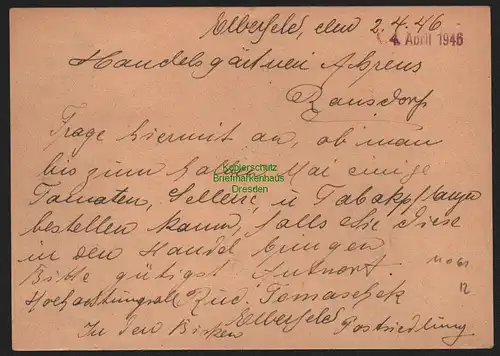 Elberfeld, den 2.4.46
4. April 1946
Handelsgärtnerei Ahrens
Ransdorf
Frage hiermit an, ob man
bis zum halben Mai einige
Kopierschutz
Briefmarkenhaus
Dresden
Tomaten, Sellerie, u Tabakpflanzen
bestellen kann, falls Sie diese
in den Handel bringen
Bitte gütigst Antwort.
Hochachtungsvoll Rud. Tomaschek
Elberfeld
In den Birken Postsiedlung